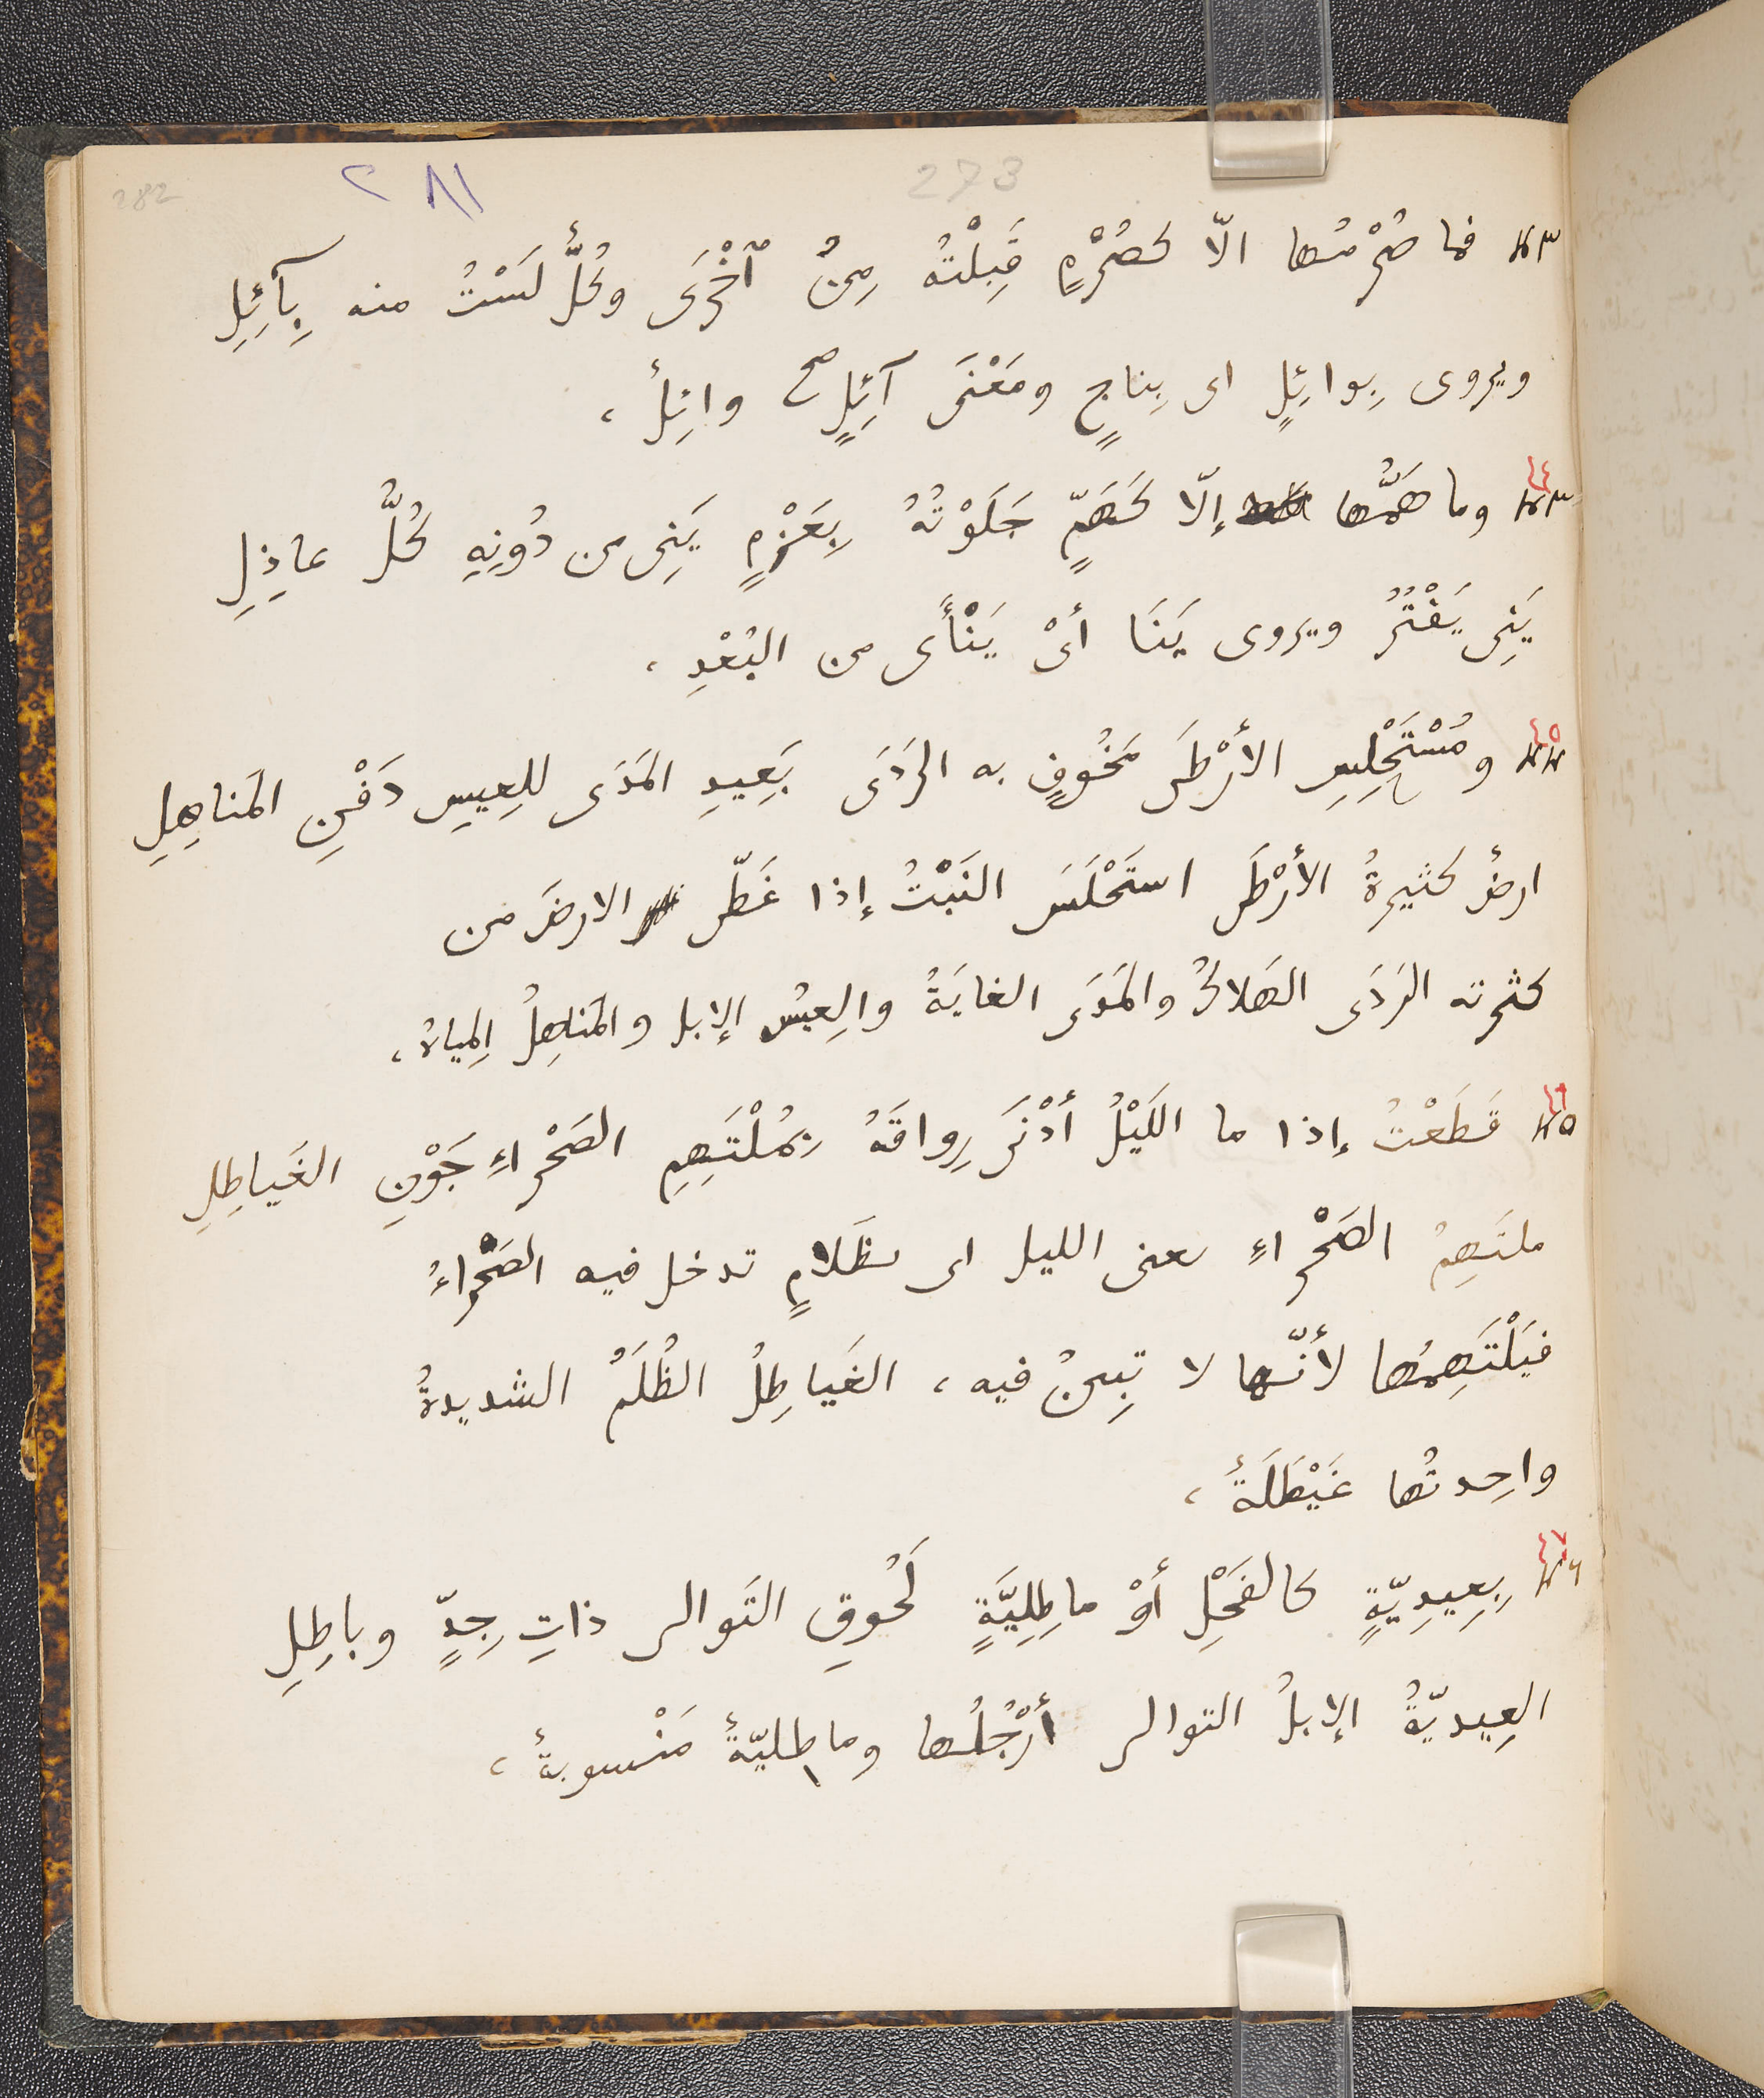 282 ٢٨١ 273
٤٣ فما صُرْمُها الّا كصُرْمٍ قَبِلْتُه مِنُ ٱخْرَى وكُلٌّ لَسْتُ منه بِآئِلِ
ويروى بِوائِلٍ اى بِناجٍ ومَعْنَى آئِلٍ صح وائِلٌ ،
٤٤ ٤٣ وما هَمُّها إلّا كَهَمٍّ جَلَوْتُهُ بِعَزْمٍ يَنِى من دُونِهِ كُلُّ عاذِلِ
يَنِى يَفْتُرُ ويروى يَنَا أىْ يَنْأَى من البُعْدِ ،
٤٥ ٤٤ ومُسْتَحْلِسِ الأَرْطَى مَخُوفٍ به الرَدَى بَعِيدِ المَدَى للعِيسِ دَفْنِ المَناهِلِ
ارضٌ كثيرةُ الأَرْطَى استَحْلَسَ النَبْتُ إذا غَطّى الارضَ من
كثرته الرَدَى الهَلاكُ والمَدَى الغايَةُ والعِيسُ الإبل والمَناهِلُ المِياهُ ،
٤٦ ٤٥ قَطَعْتُ إذا ما اللَيْلُ أَدْنَى رِواقَهُ بِمُلْتَهِمِ الصَحْراءِ جَوْنِ الغَياطِلِ
ملتَهِمُ الصَحْراءِ يعنى الليل اى بظَلامٍ تدخل فيه الصَحْراءُ
فيَلْتَهِمُها لأنّها لا تبِينُ فيه ، الغَياطِلُ الظُلَمُ الشديدةُ
واحِدتُها غَيْطَلَةٌ ،
٤٧ ٤٦ بِعِيدِيّةٍ كالفَحْلِ أَوْ ماطِلِيَّةٍ لَحُوقِ التَوالى ذاتِ جِدٍّ وباطِلِ
العِيديّةُ الإبلُ التوالى أَرْجُلُها وماطليّةٌ مَنْسوبةٌ ،